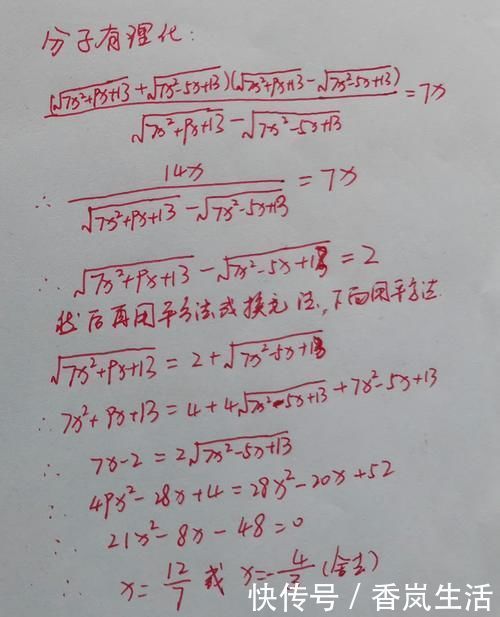 分子有理化:
(√7x²+9x+13 + √7x²-5x+13)(√7x²+9x+13 - √7x²-5x+13) / √7x²+9x+13 - √7x²-5x+13 = 7x
∴ 14x / √7x²+9x+13 - √7x²-5x+13 = 7x
∴ √7x²+9x+13 - √7x²-5x+13 = 2
然后再用平方法或换元法,下面用平方法.
√7x²+9x+13 = 2+√7x²-5x+13
∴ 7x²+9x+13 = 4+4√7x²-5x+13 + 7x²-5x+13
∴ 7x-2 = 2√7x²-5x+13
∴ 49x²-28x+4 = 28x²-20x+52
∴ 21x²-8x-48=0
∴ x= 12/7 或 x=-4/3 (舍去)
快传号 / 香岚生活